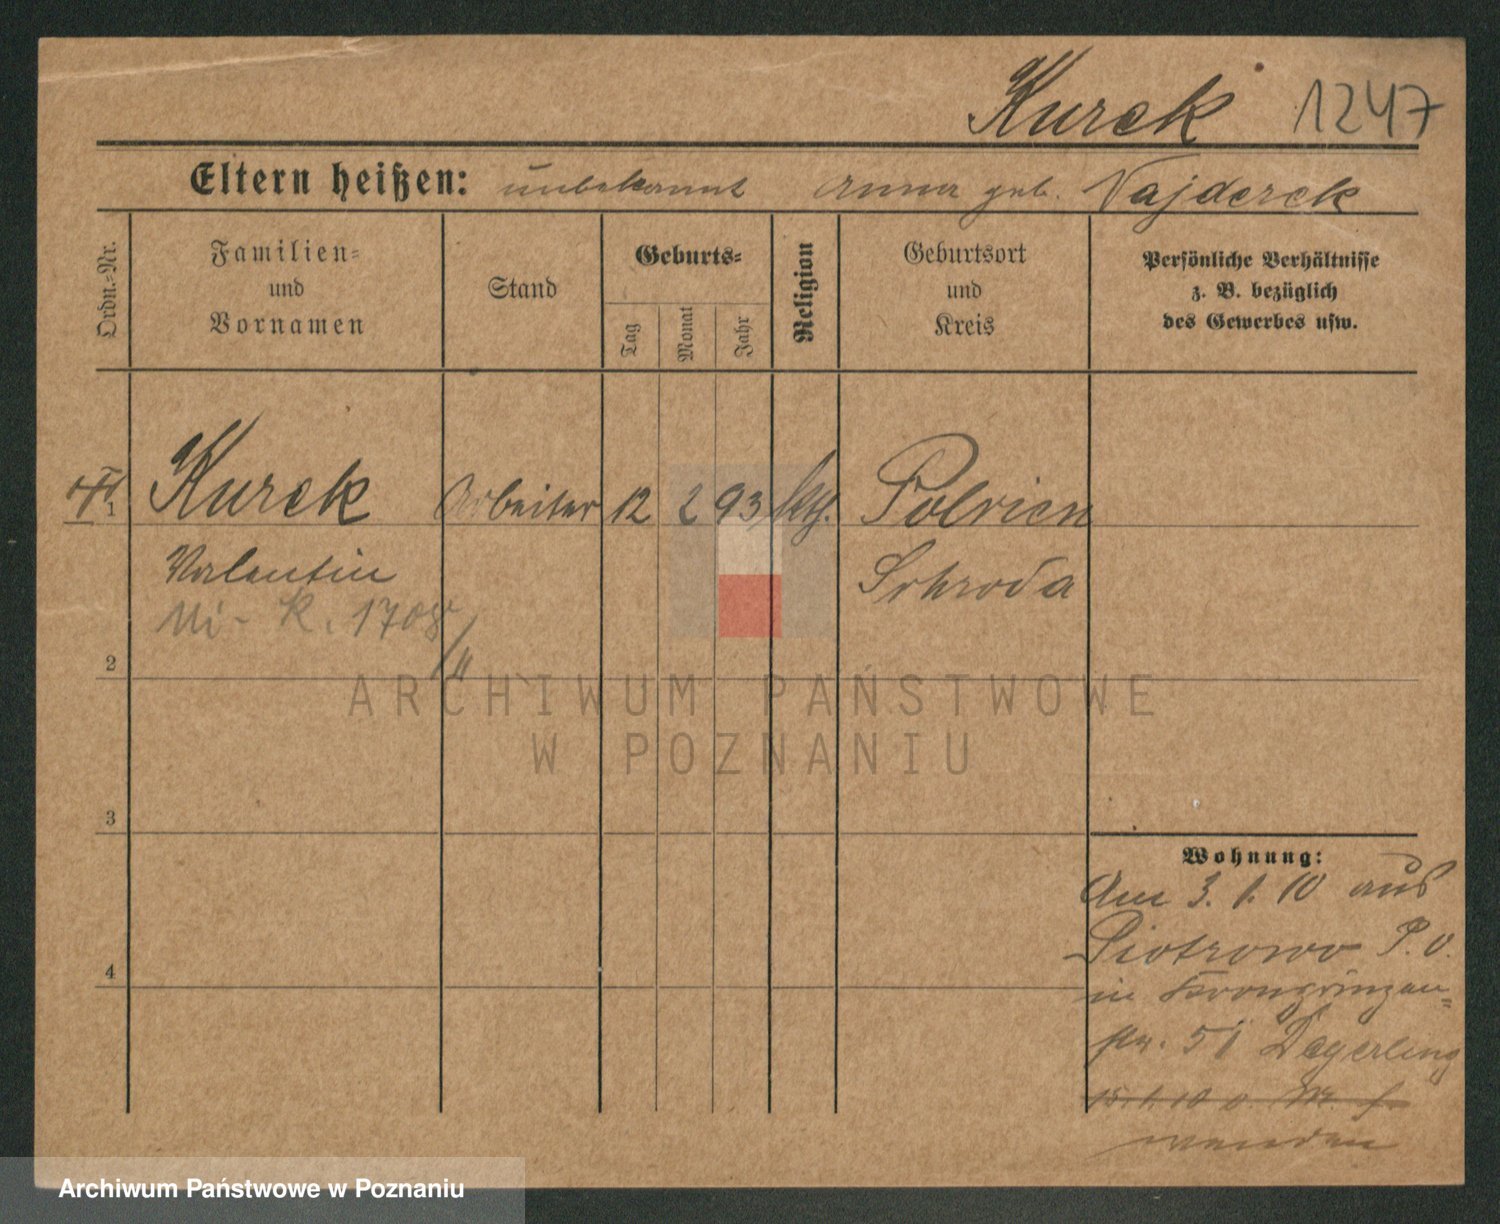 Kurek 1247
Eltern heißen: unbekannt Anna geb. Najderek
Ordn.-Nr.
Familien- und Vornamen
Stand
Geburts-
Tag
Monat
Jahr
Religion
Geburtsort und Kreis
Persönliche Verhältnisse
z. B. bezüglich
des Gewerbes usw.
1 Kurek Arbeiter 12 2 93 kth. Polvien
Valentin Schroda
K. 1708
2
3
4
Wohnung:
Am 3. 1. 10 aus
Piotrowo P. O.
in Kronprinzen-
str. 51 Degerling
ARCHIWUM PAŃSTWOWE
W POZNANIU
Archiwum Państwowe w Poznaniu